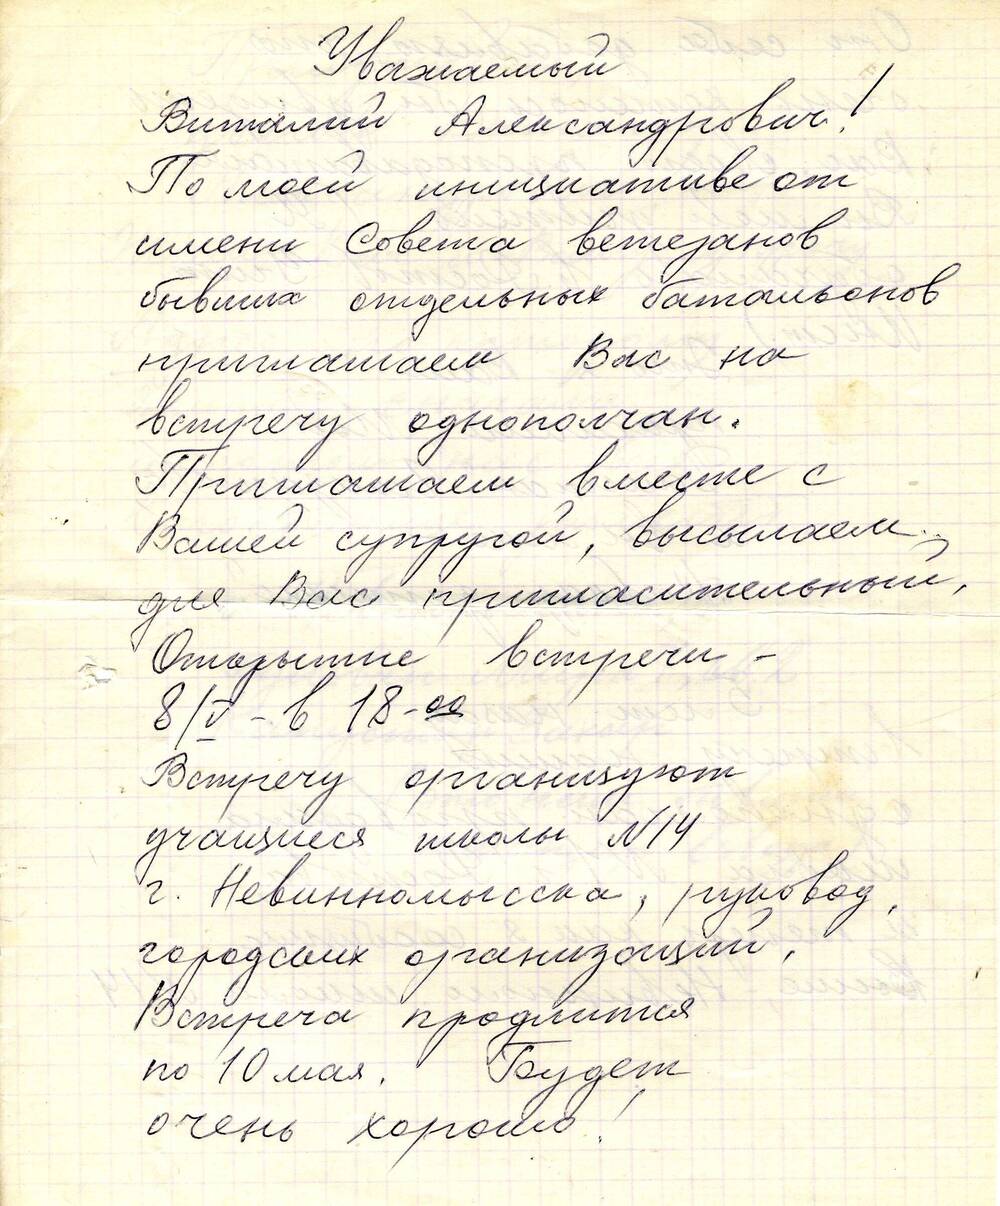 Уважаемый
Виталий Александрович!
По моей инициативе от
имени Совета ветеранов
бывших отдельных батальонов
приглашаем Вас на
встречу однополчан.
Приглашаем вместе с
Вашей супругой, высылаем
для Вас пригласительный,
Открытие встречи -
8/V - в 18-00
Встречу организуют
учащиеся школы N14
г. Невинномысска, руковод.
городских организаций,
Встреча продлится
по 10 мая. Будет
очень хорошо!